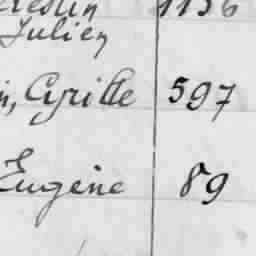 1136
Julien
Cyrille 597
Eugène 89